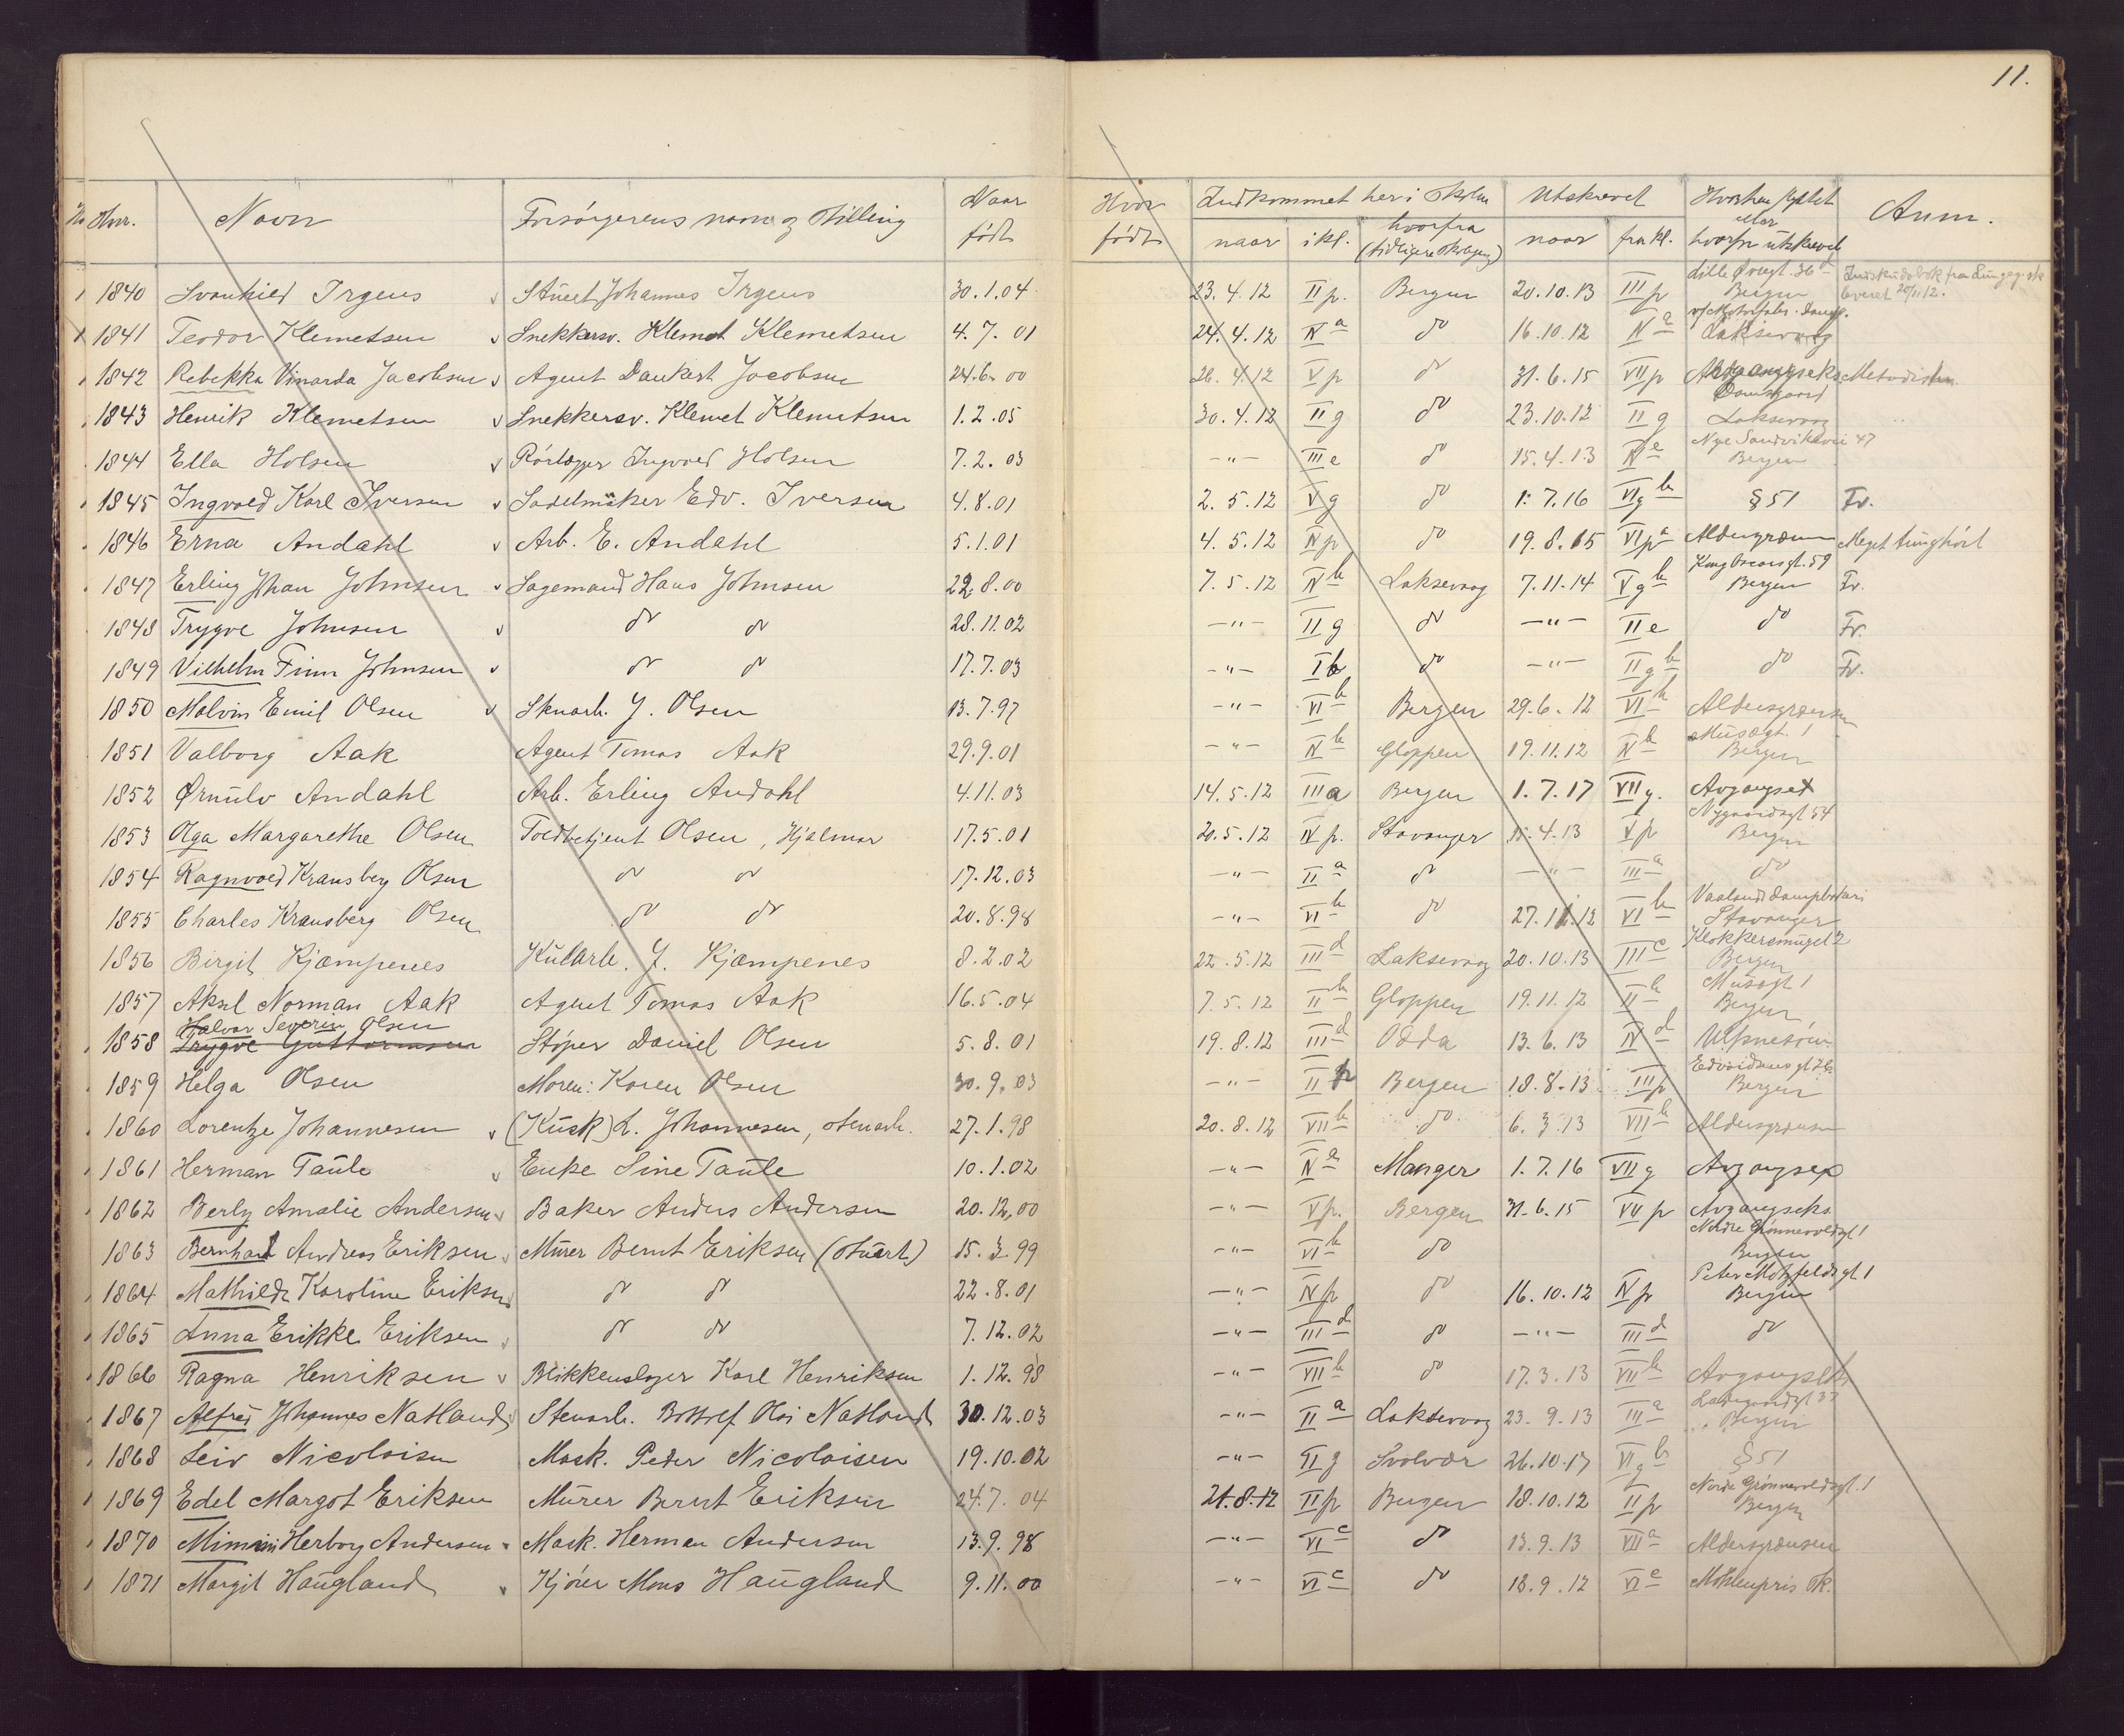 11.
Hnr. Navn Forsørgerens navn og stilling Naar født Hvor født Indkommet her i skolen naar i kl. hvorfra (tidligere skolegang) Utskrevet naar fra kl. Hvorhen flyttet eller hvorfor utskrevet Anm.
1840 Svanhild Irgens v Stuert Johannes Irgens 30.1.04 23.4.12 II p. Bergen 20.10.13 III p Lille Øvregt. 36 Bergen
1841 Teodor Klemetsen v Snekkersv. Klemet Klemetsen 4.7.01 24.4.12 IV a do 16.10.12 IV a Laksevaag
1842 Rebekka Vinarda Jacobsen v Agent Dankert Jacobsen 24.6.00 26.4.12 V p do 31.6.15 VII p Avgangseks Metodisten
1843 Henrik Klemetsen v Snekkersv. Klemet Klemetsen 1.2.05 30.4.12 II g do 23.10.12 II g Damsgaard Laksevaag
1844 Ella Holsen v Rørlægger Ingvald Holsen 7.2.03 -"- III e do 15.4.13 IV e Nye Sandviksvei 47 Bergen
1845 Ingvald Karl Iversen v Sadelmaker Edv. Iversen 4.8.01 2.5.12 V g do 1.7.16 VI g b § 51 Fv.
1846 Erna Andahl v Arb. E. Andahl 5.1.01 4.5.12 IV p do 19.8.15 VI p a Aldersgrænsen Meget tunghørt
1847 Erling Johan Johnsen v Sagemand Hans Johnsen 22.8.00 7.5.12 IV b Laksevaag 7.11.14 V g b Kong Oscarsgt. 59 Bergen Fv.
1848 Trygve Johnsen v do do 28.11.02 -"- II g do -"- II e do Fv.
1849 Vilhelm Finn Johnsen v do do 17.7.03 -"- I b do -"- II g b do Fv.
1850 Malvin Emil Olsen v Skuarb. J. Olsen 13.7.97 -"- VI b Bergen 29.6.12 VI b Aldersgrænsen
1851 Valborg Aak Agent Tomas Aak 29.9.01 -"- IV b Gloppen 19.11.12 IV b Musægt. 1 Bergen
1852 Ørnulv Andahl Arb. Erling Andahl 4.11.03 14.5.12 III a Bergen 1.7.17 VII g. Avgangsex
1853 Olga Margarethe Olsen Toldbetjent Olsen, Hjalmar 17.5.01 20.5.12 IV p. Stavanger 15.4.13 V p Nygaardsgt 54 Bergen
1854 Ragnvald Kransberg Olsen do do 17.12.03 -"- II a do -"- III a do
1855 Charles Kransberg Olsen do do 20.8.98 -"- VI b do 27.11.12 VI b Vaaland Dampbakeri Stavanger
1856 Birgit Kjæmpenes Kularb. J. Kjæmpenes 8.2.02 22.5.12 III d Laksevaag 20.10.13 III c Klokkersmuget 2 Bergen
1857 Aksel Norman Aak Agent Tomas Aak 16.5.04 7.5.12 II b Gloppen 19.11.12 II b Musægt 1 Bergen
Halvor Severin Olsen
1858 Trygve Guttormsen Støper Daniel Olsen 5.8.01 19.8.12 III d Odda 13.6.13 IV d Ulsnesøin
1859 Helga Olsen Moren: Karen Olsen 30.9.03 -"- II p Bergen 18.8.13 III p Edvardsensgt 26 Bergen
1860 Lorentze Johannesen v (Kusk) L. Johannesen, stenarb. 27.1.98 20.8.12 VII b do 6.3.13 VII b Aldersgrænsen
1861 Herman Taule v Enke Sine Taule 10.1.02 -"- IV e Manger 1.7.16 VII g Avgangsex
1862 Berly Amalie Andersen v Baker Anders Andersen 20.12.00 -"- V p. Bergen 31.6.15 VII p Avgangseks
1863 Bernhard Andreas Eriksen v Murer Bernt Eriksen (stuert) 15.3.99 -"- VI b do Nordre Grønnevoldsgt 1 Bergen
1864 Mathilde Karoline Eriksen do do 22.8.01 -"- IV p do 16.10.12 IV p Peter Motzfeldtsgt 1 Bergen
1865 Anna Erikke Eriksen v do do 7.12.02 -"- III d do -"- III d do
1866 Ragna Henriksen v Blikkenslager Karl Henriksen 1.12.98 -"- VII b do 17.3.13 VII b Avgangseks
1867 Alfred Johannes Natland v Stenarb. Bottolf Olai Natland 30.12.03 -"- II a Laksevaag 23.9.13 III a Ladegaardsgt 37 Bergen
1868 Leiv Nicolaisen Mask. Peder Nicolaisen 19.10.02 -"- II g Svolvær 26.10.17 VI g b § 51
1869 Edel Margot Eriksen Murer Bernt Eriksen 24.7.04 21.8.12 II p Bergen 18.10.12 II p Nordre Grønnevoldsgt. 1 Bergen
1870 Mimmi Herborg Andersen Mask. Herman Andersen 13.9.98 -"- VI c do 13.9.13 VII a Aldersgrænsen
1871 Margit Haugland v Kjører Mons Haugland 9.11.00 -"- VI c do 18.9.12 VI e Møhlenpris sk.